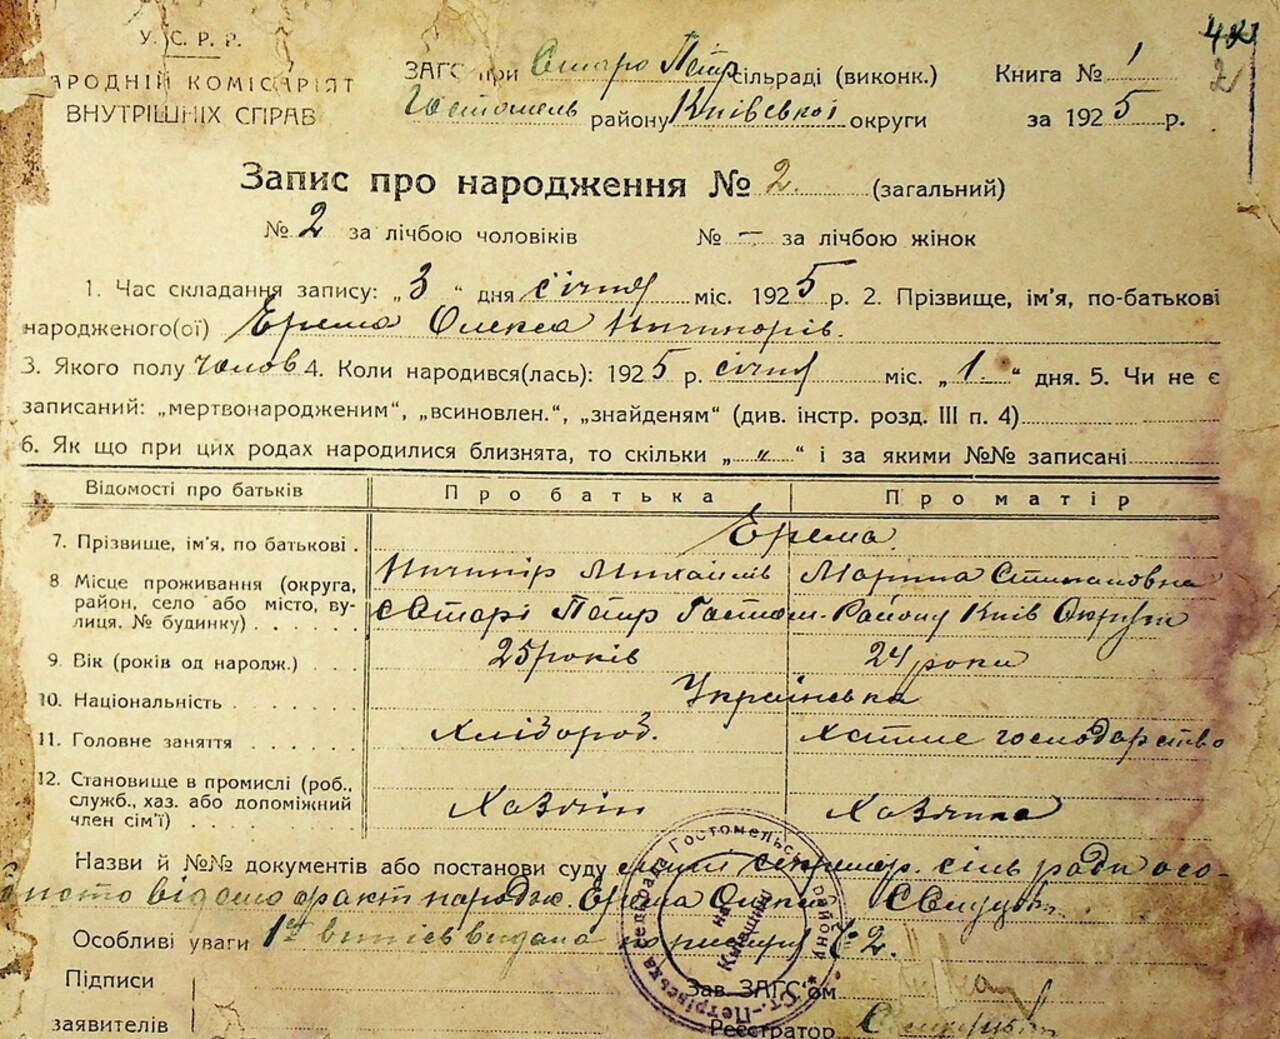 У. С. Р. Р.
НАРОДНІЙ КОМІСАРІЯТ
ВНУТРІШНІХ СПРАВ
ЗАГС при Старо Петр сільраді (виконк.)
Гостомель району Київської округи
Книга № 1
за 1925 р.
2
Запис про народження № 2. (загальний)
№ 2 за лічбою чоловіків № — за лічбою жінок
1. Час складання запису: „3“ дня січня міс. 1925 р. 2. Прізвище, ім'я, по-батькові
народженого(ої) Ерема Олекса Ничипорів.
3. Якого полу чолов 4. Коли народився(лась): 1925 р. січня міс. „1.“ дня. 5. Чи не є
записаний: „мертвонародженим“, „всиновлен.“, „знайденям“ (див. інстр. розд. III п. 4)
6. Як що при цих родах народилися близнята, то скільки „ „ “ і за якими №№ записані
Відомості про батьків Про батька Про матір
7. Прізвище, ім'я, по батькові . Ерема.
Ничипір Михайлів Марина Степановна
8 Місце проживання (округа,
район, село або місто, ву-
лиця. № будинку) . . . . . . с Старі Петр Гостом. Району Київ Округи
9. Вік (років од народж.) . . . 25 років 24 роки
10. Національність . . . . . . Українська
11. Головне заняття . . . . . . Хлібороб. Хатнє господарство
12. Становище в промислі (роб.,
служб., хаз. або допоміжний
член сім'ї) . . . . . . . Хазяїн Хазяйка
Назви й №№ документів або постанови суду сільради осо-
бисто відомо факт народж. Ерема Олекси
Особливі уваги 1й витів видано по реєстру № 2.
Підписи
заявителів
Зав. ЗАГС'ом
Реєстратор
Ст.-Петрівська сельрада Гостомельськ. району
на Київщині